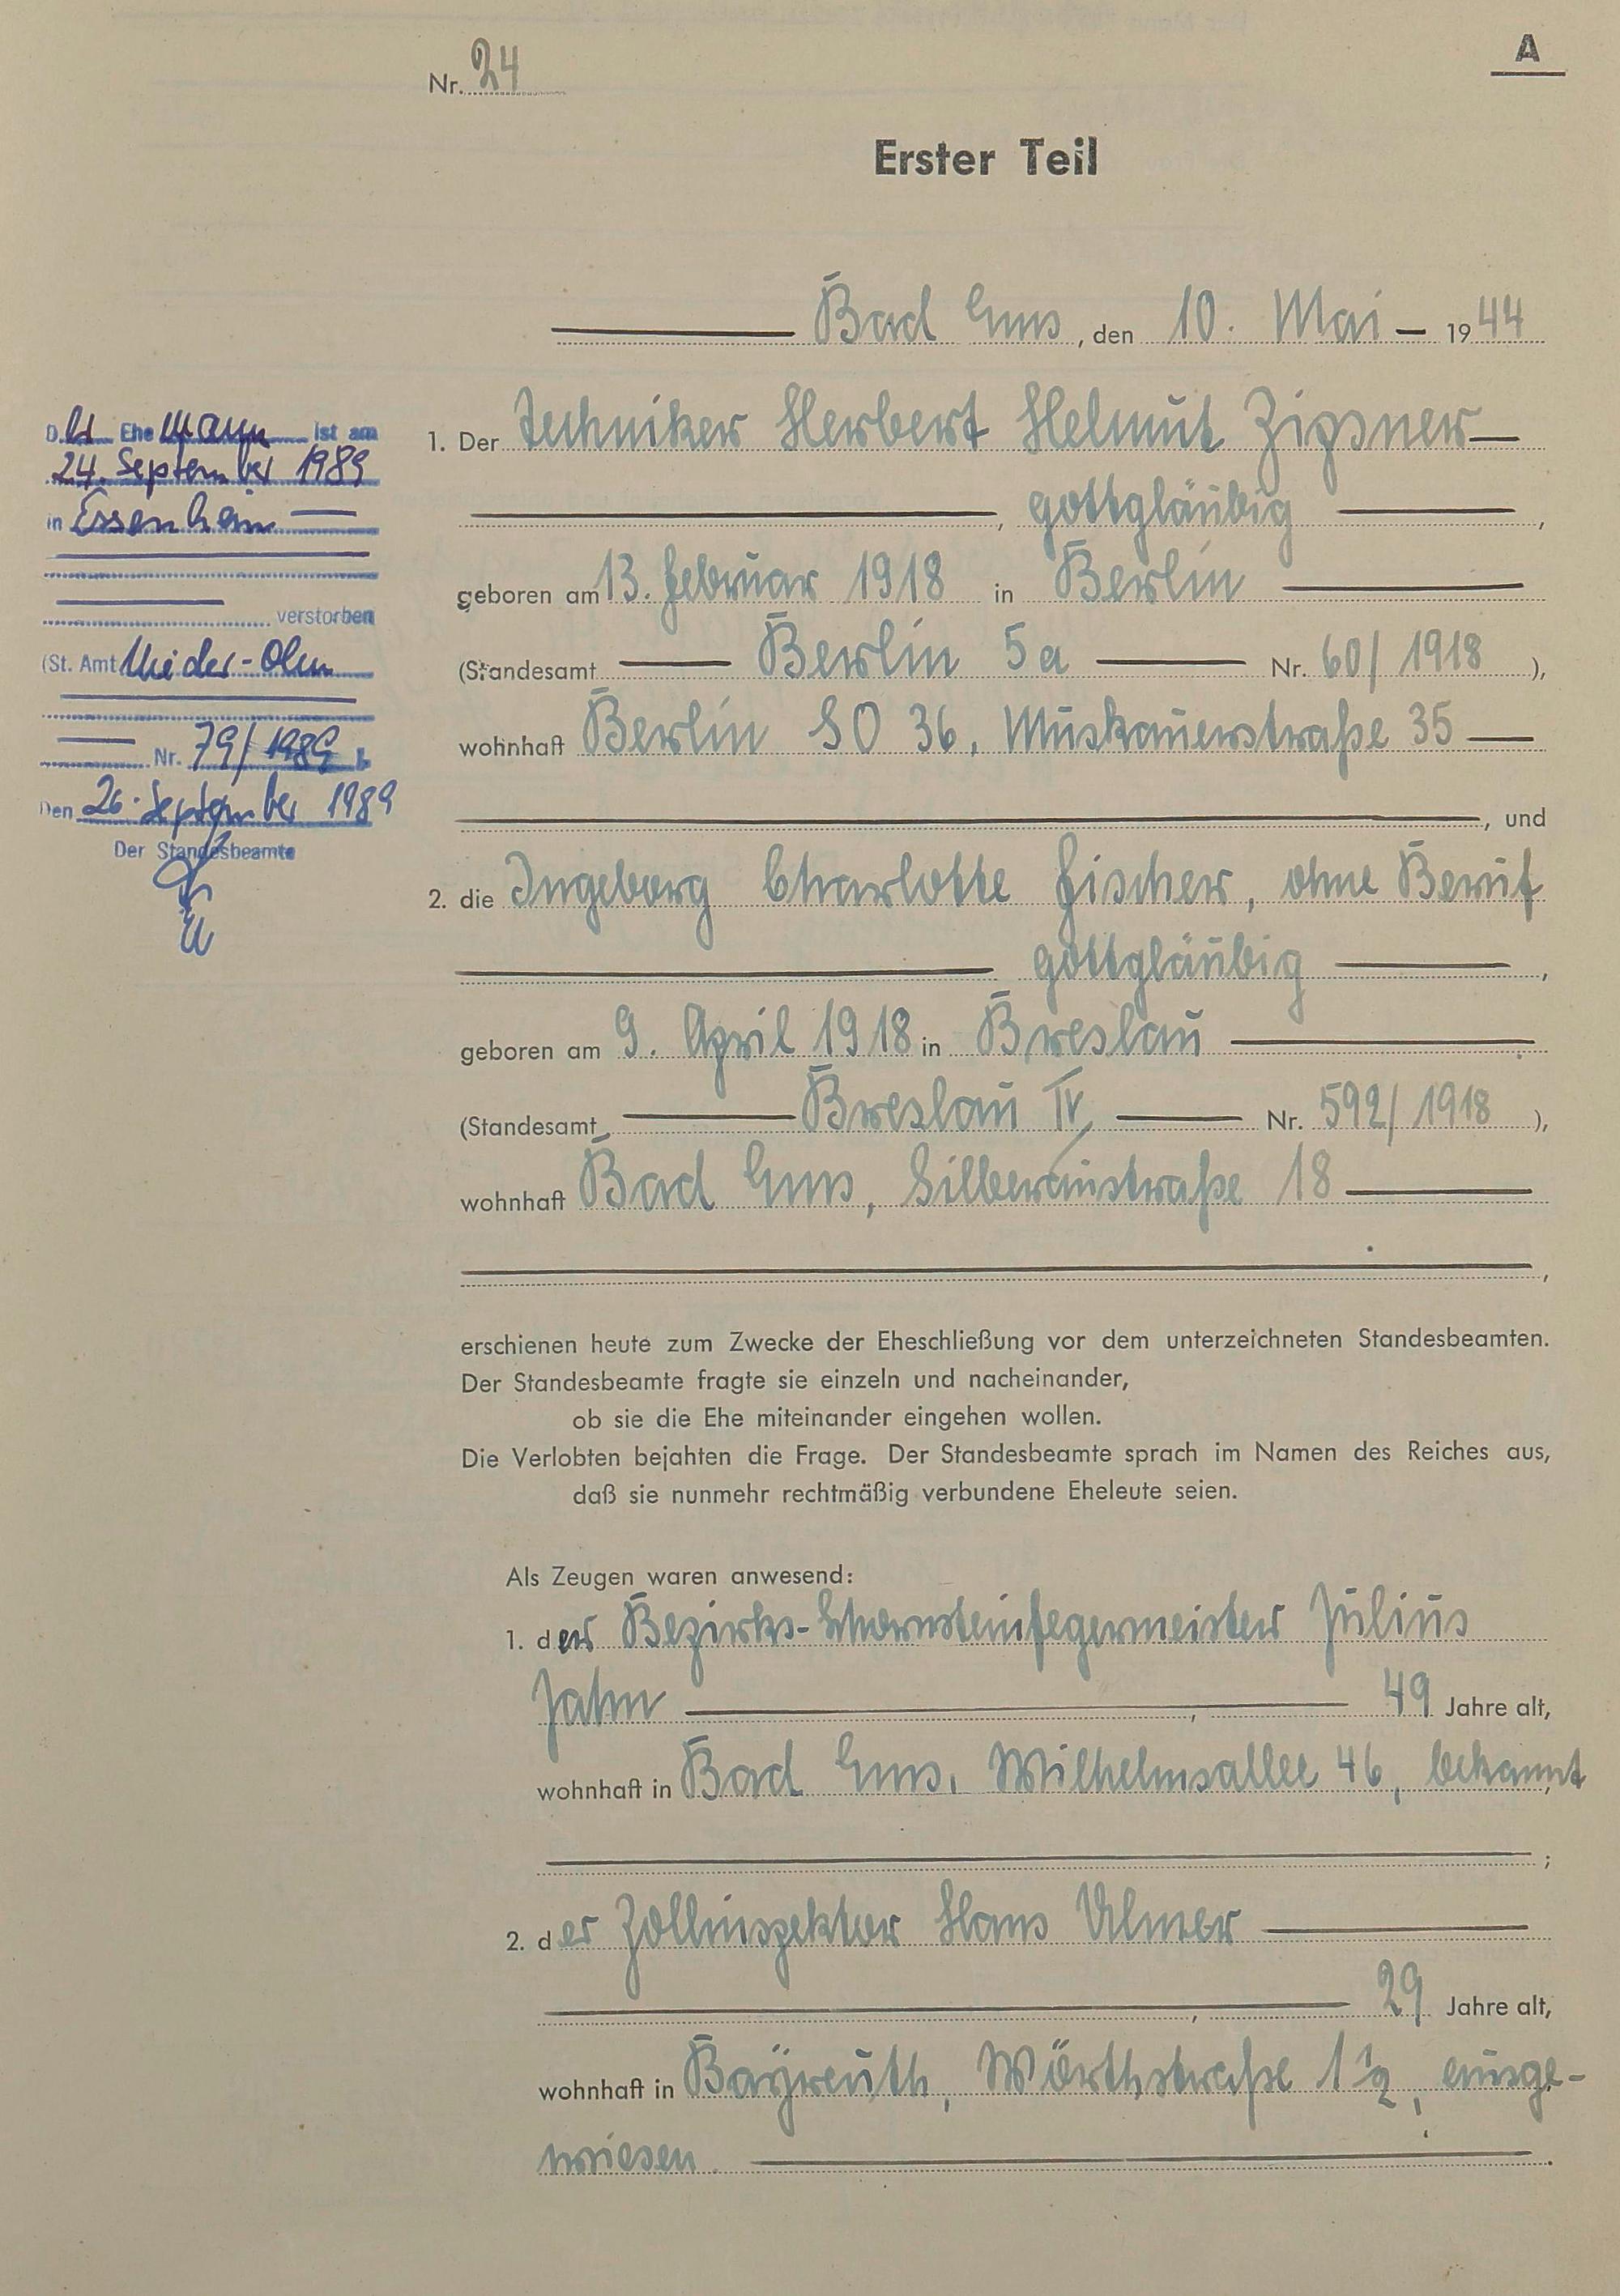 A
Nr. 24
Erster Teil
Bad Ems, den 10. Mai 1944
1. Der Techniker Herbert Helmut Zipsner
, gottgläubig,
geboren am 13. Februar 1918 in Berlin
(Standesamt Berlin 5a Nr. 60/1918),
wohnhaft Berlin SO 36, Muskauerstraße 35
, und
2. die Ingeborg Charlotte Fischer, ohne Beruf
gottgläubig,
geboren am 9. April 1918 in Breslau
(Standesamt Breslau IV Nr. 592/1918),
wohnhaft Bad Ems, Silberaustraße 18
,
erschienen heute zum Zwecke der Eheschließung vor dem unterzeichneten Standesbeamten.
Der Standesbeamte fragte sie einzeln und nacheinander,
ob sie die Ehe miteinander eingehen wollen.
Die Verlobten bejahten die Frage. Der Standesbeamte sprach im Namen des Reiches aus,
daß sie nunmehr rechtmäßig verbundene Eheleute seien.
Als Zeugen waren anwesend:
1. der Bezirks-Schornsteinfegermeister Julius
Jahn, 49 Jahre alt,
wohnhaft in Bad Ems, Wilhelmsallee 46, bekannt
;
2. der Zollinspektor Hans Ulmer
, 29 Jahre alt,
wohnhaft in Bayreuth, Wörthstraße 1 1/2, ausge-
wiesen.
Der Ehemann ist am
24. September 1989
in Essenheim
verstorben
(St. Amt Nieder-Olm
Nr. 79/1989).
Den 26. September 1989
Der Standesbeamte